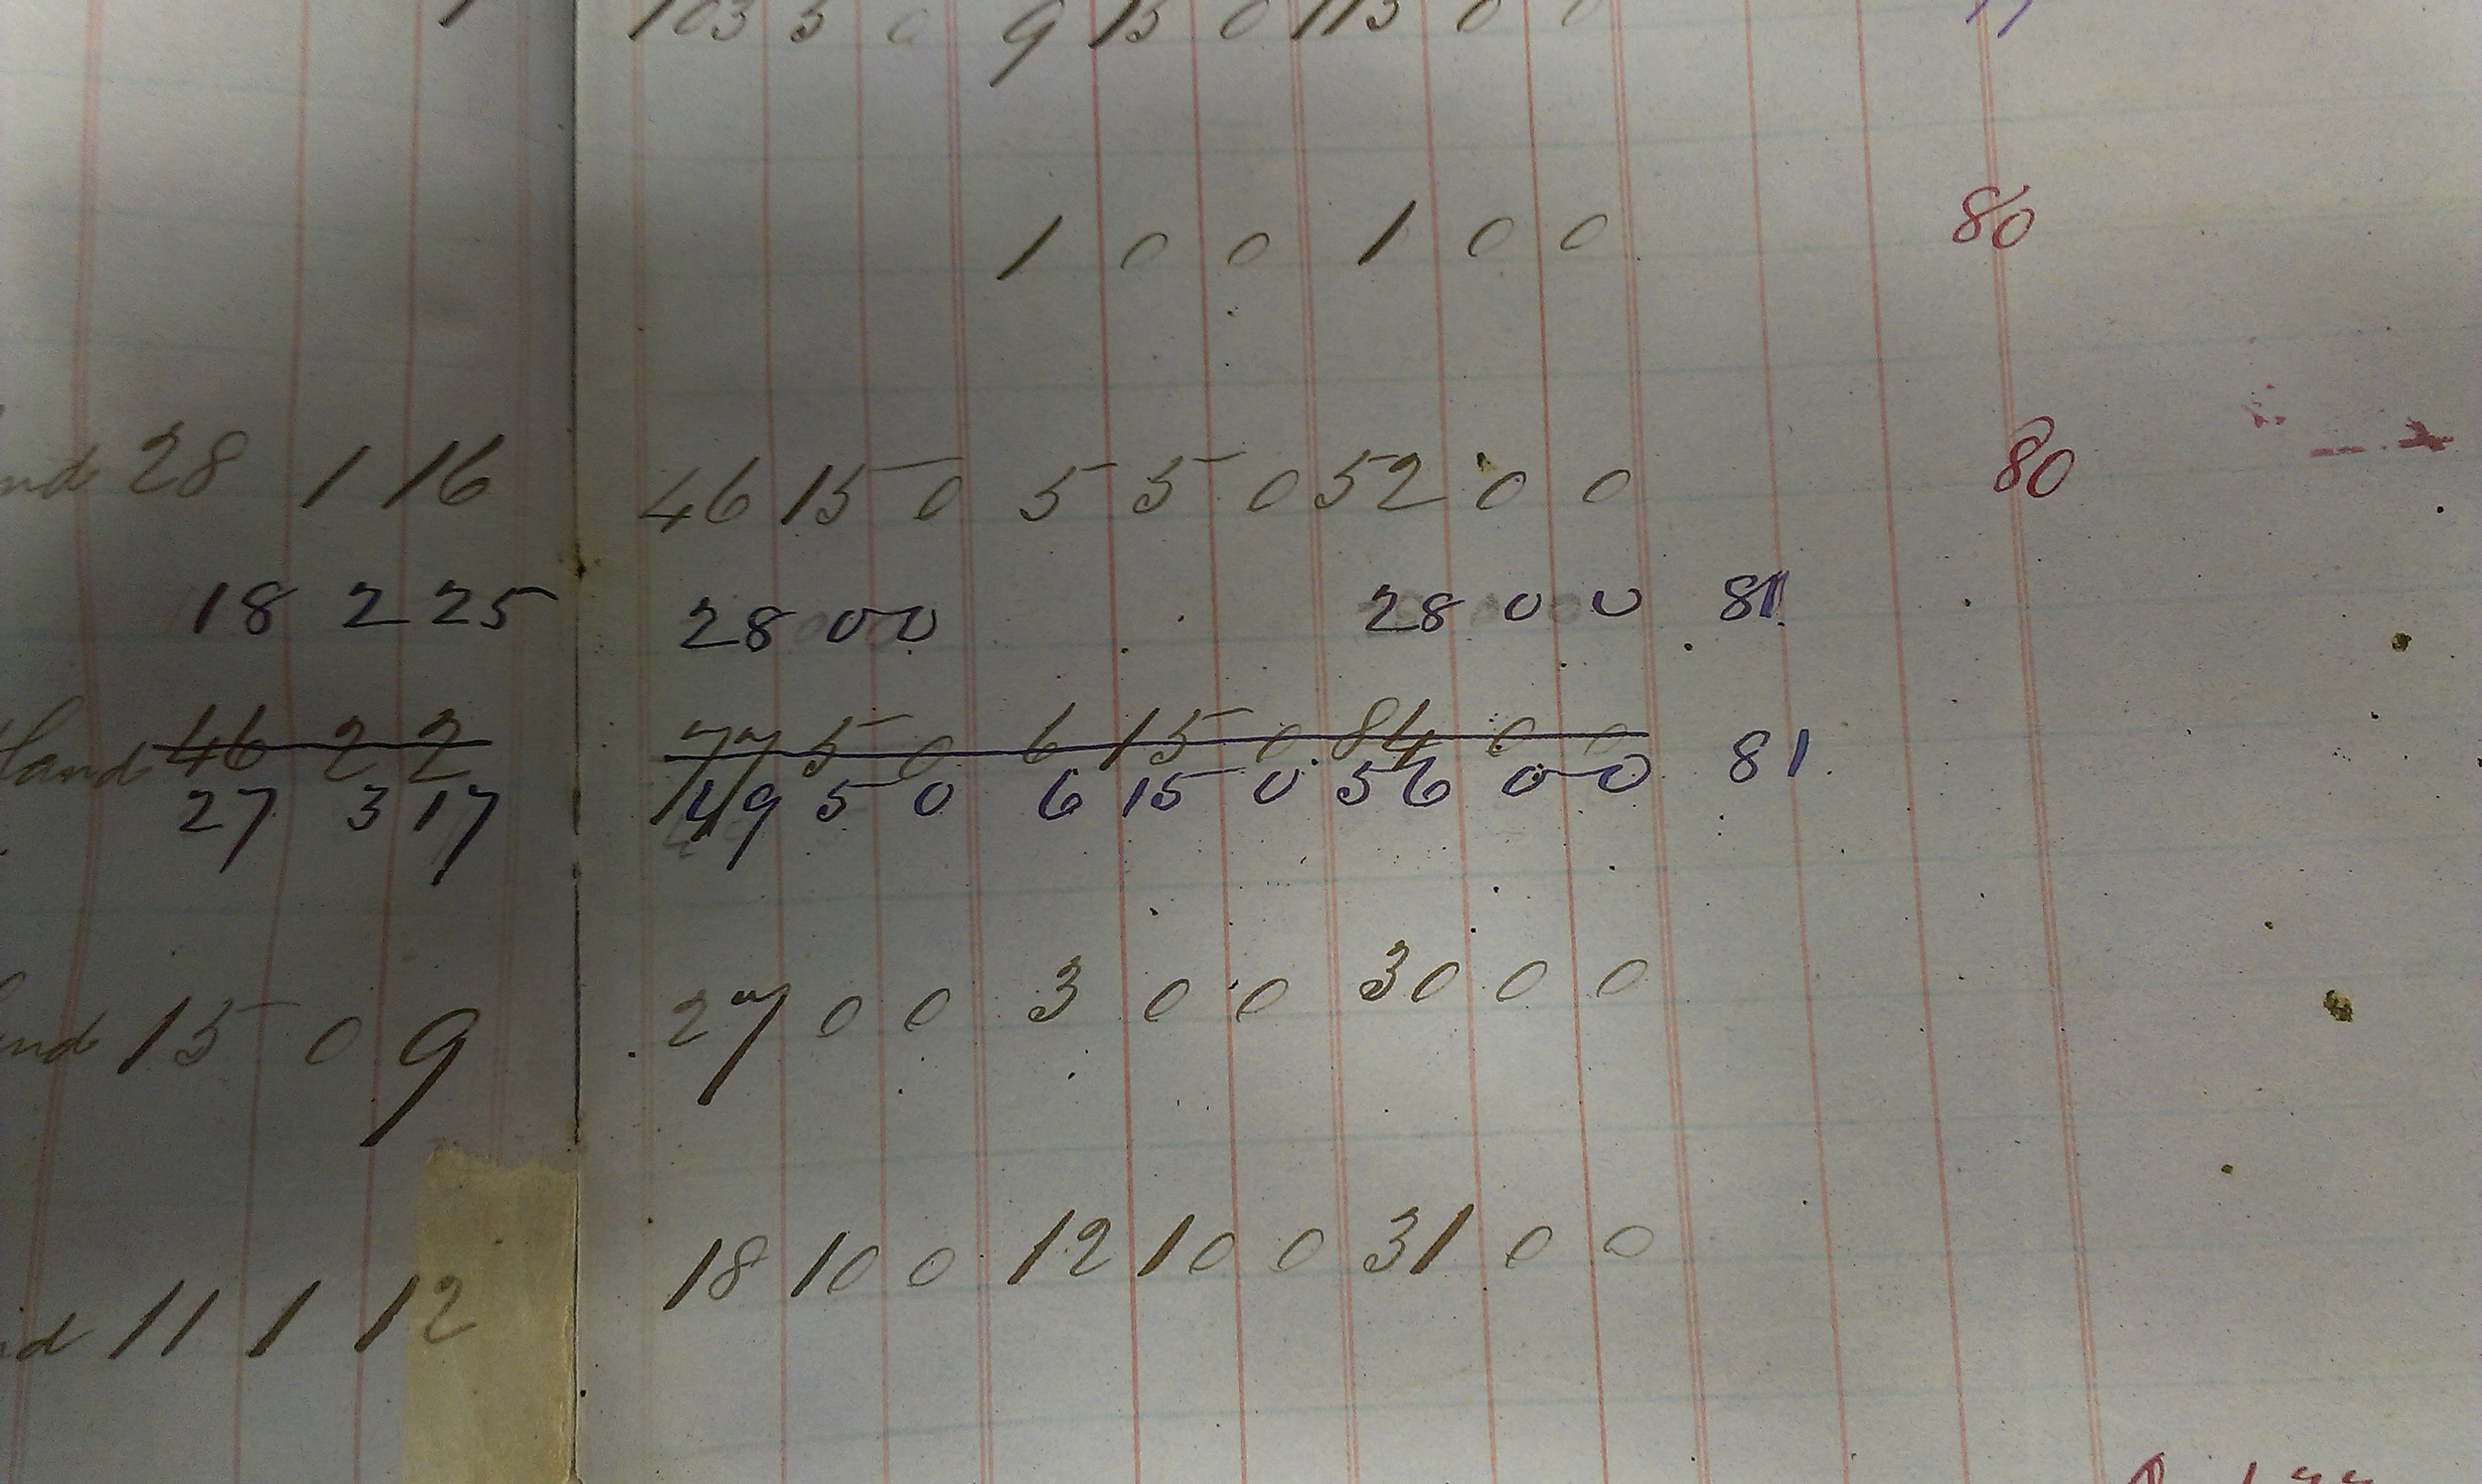 103 5 0 9 15 0 113 0 0
1 0 0 1 0 0 80
nd 28 1 16 46 15 0 5 5 0 52 0 0 80
18 2 25 28 0 0 28 0 0 81
land 46 2 2 77 5 0 6 15 0 84 0 0
27 3 17 49 5 0 6 15 0 56 0 0 81
nd 15 0 9 27 0 0 3 0 0 30 0 0
d 11 1 12 18 10 0 12 10 0 31 0 0